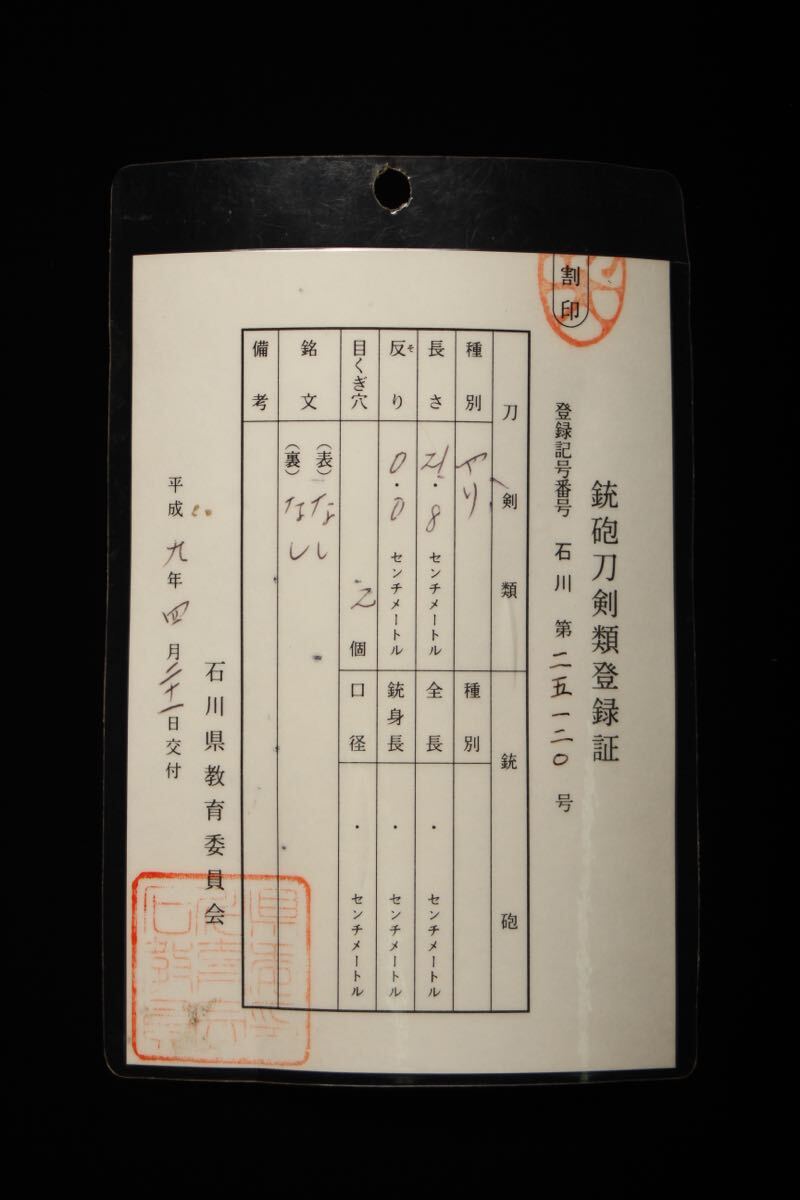 割印
銃砲刀剣類登録証
登録記号番号 石川 第二五一二〇号
刀剣類
銃砲
種別 やり
種別
長さ ・8 センチメートル
全長 ・ センチメートル
反り そ 0・0 センチメートル
銃身長 ・ センチメートル
目くぎ穴 個
口径 ・ センチメートル
銘文 (表) なし
(裏) なし
備考
石川県教育委員会
平成九年四月二十一日交付